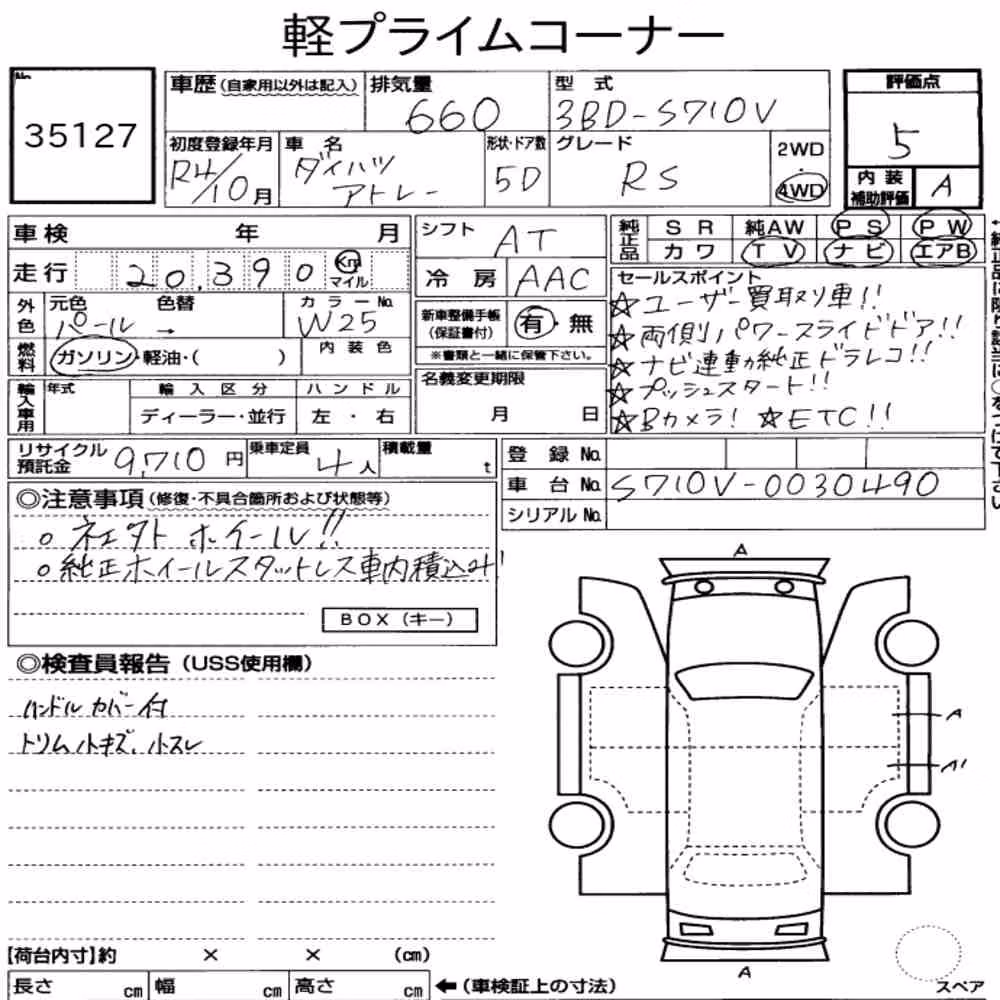 軽プライムコーナー
No.
35127
車歴(自家用以外は記入)
排気量
660
型 式
3BD-S710V
評価点
5
初度登録年月
R4/10月
車 名
ダイハツ
アトレー
形状・ドア数
5D
グレード
RS
2WD
・
4WD
内 装
補助評価
A
車検 年 月
走行 20,390 Km
マイル
シフト
AT
冷 房
AAC
純正品
SR 純AW PS PW
カワ TV ナビ エアB
外色
元色 色替
パール →
カラーNo.
W25
燃料
ガソリン・軽油・( )
内 装 色
新車整備手帳
(保証書付)
有・無
※書類と一緒に保管下さい。
セールスポイント
☆ユーザー買取り車!!
☆両側パワースライドドア!!
☆ナビ連動純正ドラレコ!!
☆プッシュスタート!!
☆Bカメラ! ☆ETC!!
輸入車用
年式
輸 入 区 分
ディーラー・並行
ハ ン ド ル
左 ・ 右
名義変更期限
月 日
リサイクル
預託金
9,710円
乗車定員
4人
積載量
t
登 録 No.
車 台 No. S710V-0030490
シリアル No.
◎注意事項(修復・不具合箇所および状態等)
○ ホイール!!
○純正ホイールスタットレス車内積込み!
BOX(キー)
◎検査員報告(USS使用欄)
ハンドルカバー付
トリム小キズ、小スレ
A
A
A1
A
【荷台内寸】約 × × (cm)
長さ cm 幅 cm 高さ cm ←(車検証上の寸法)
スペア